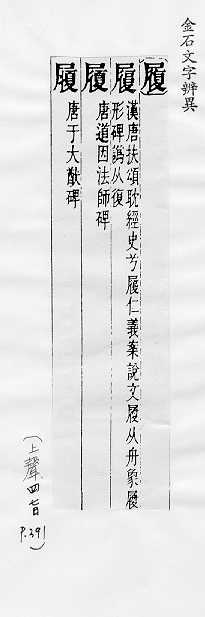 金石文字辨異
履
履 漢唐扶頌耽經史兮履仁義案說文履从舟象履
形碑譌从復
履 唐道因法師碑
履 唐于大猷碑
(上聲四旨
P.391)